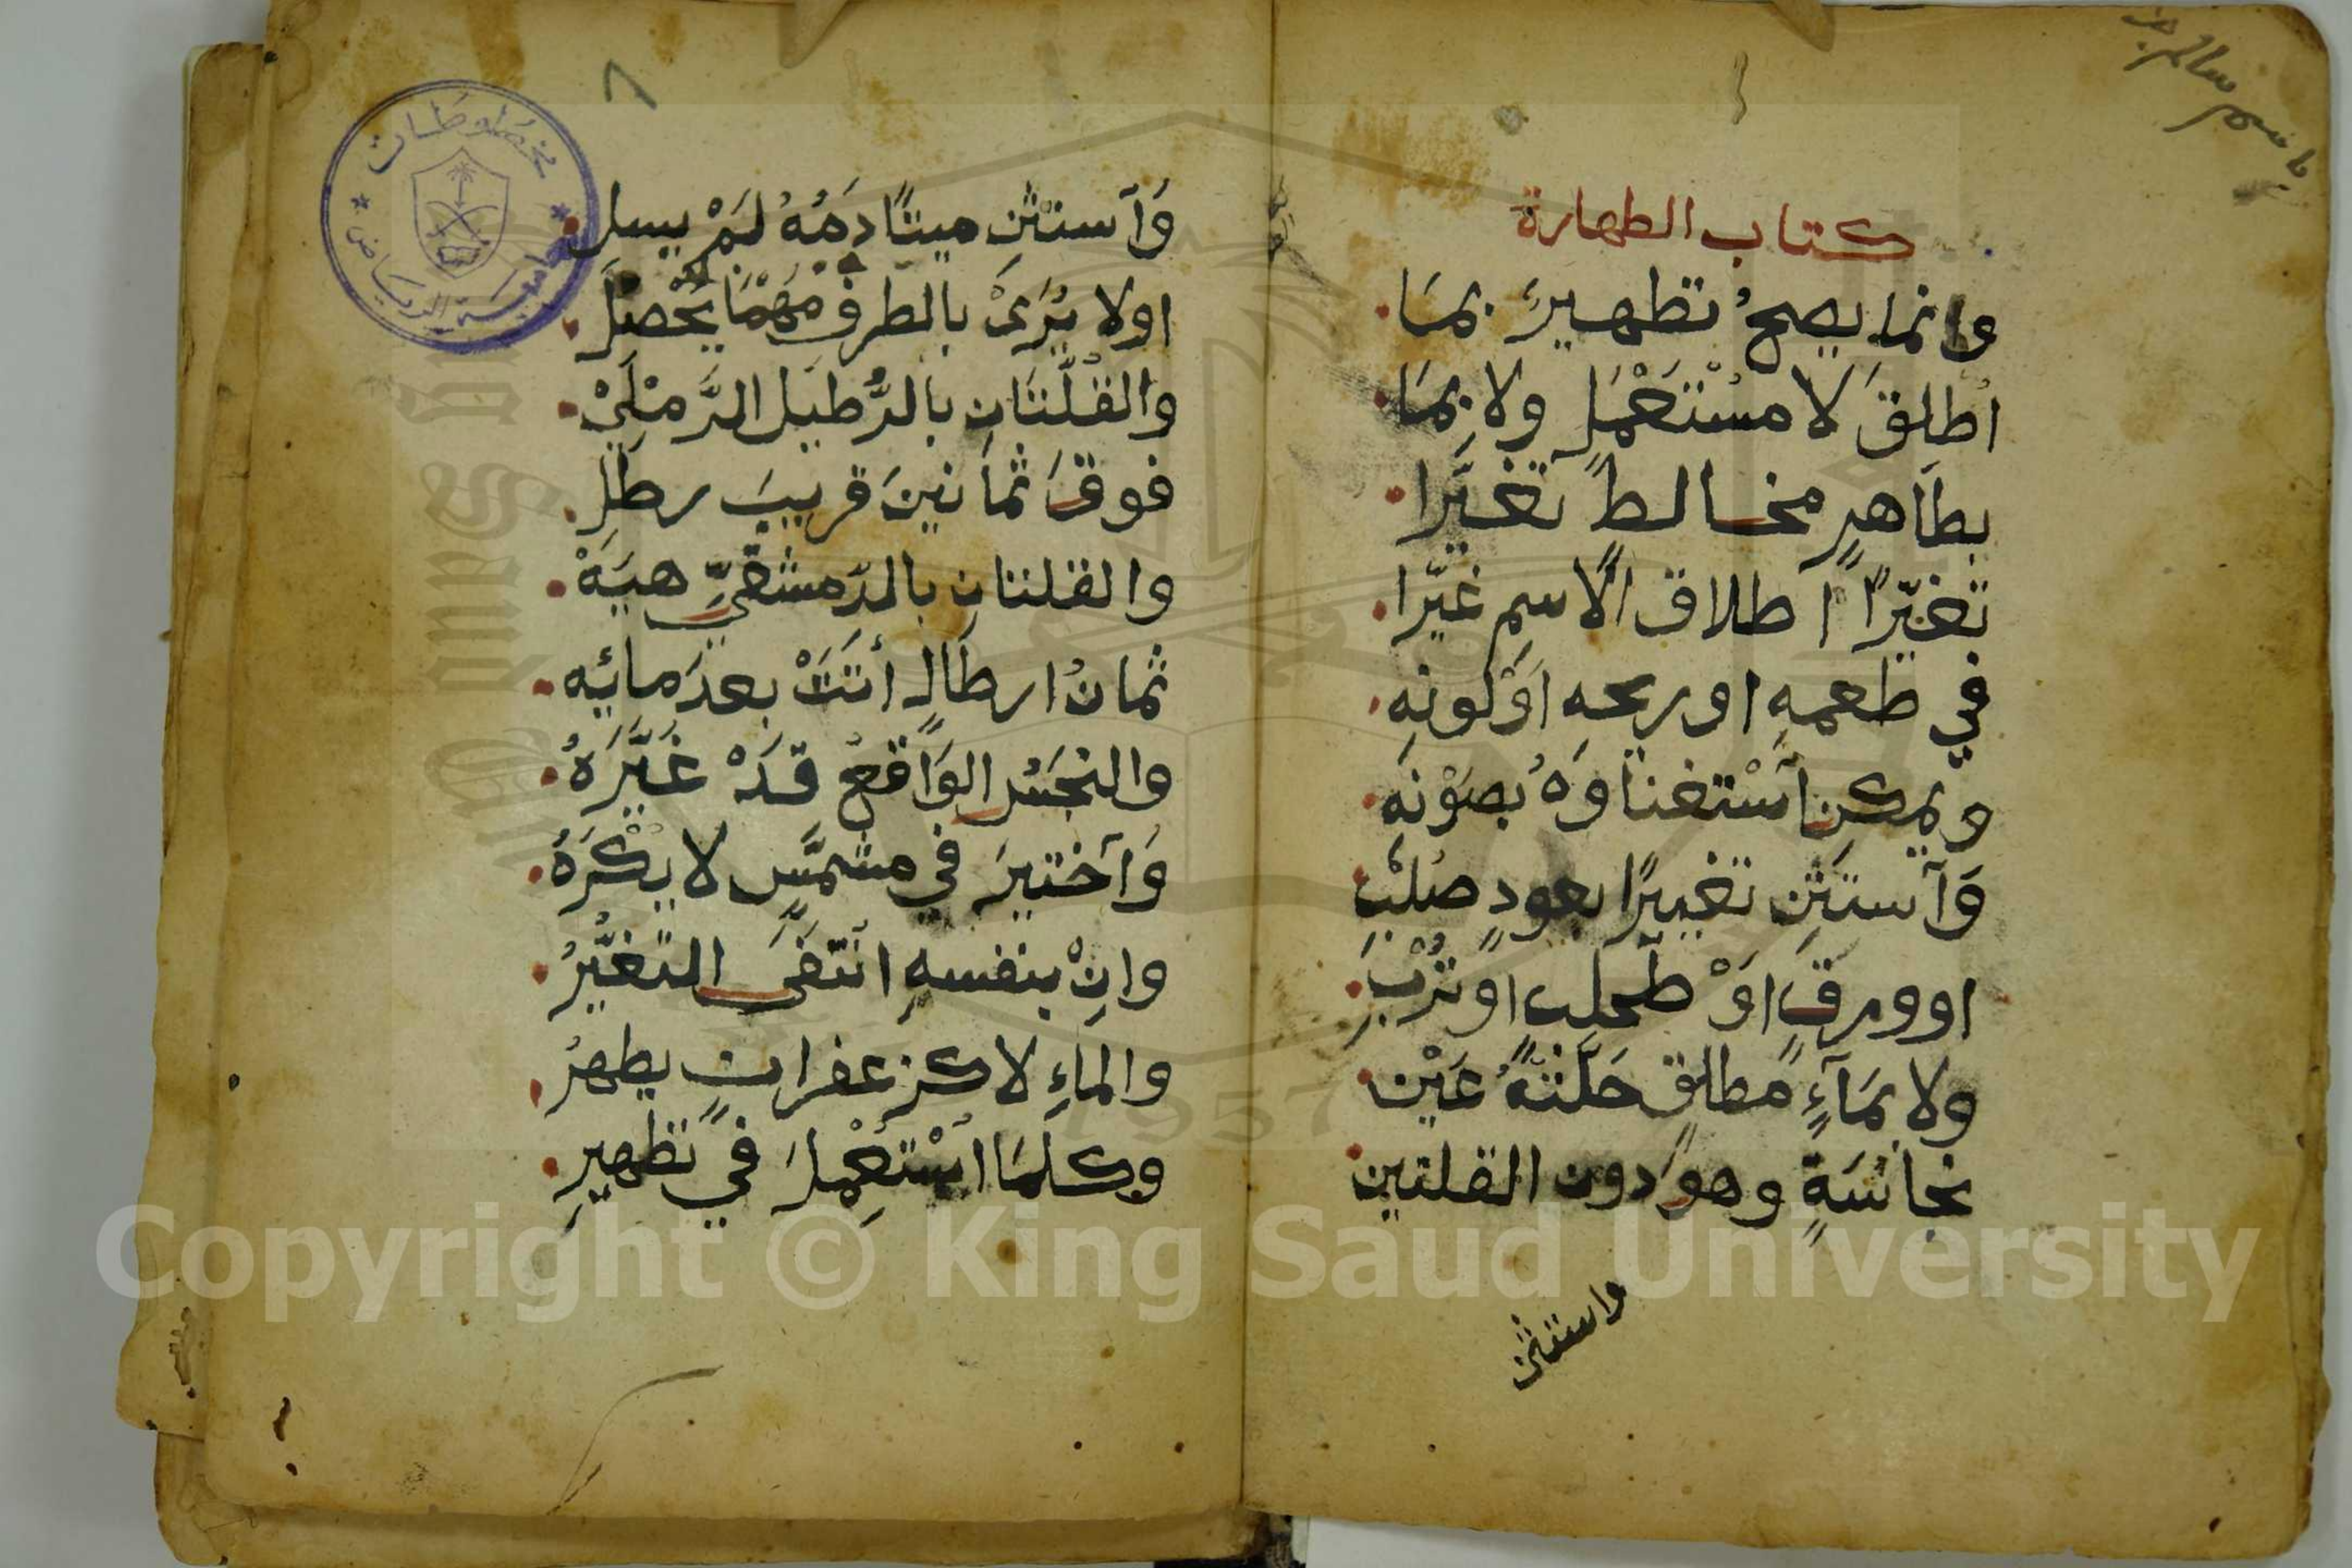 كتاب الطهارة
وانما يصحُ تطهيرَ بمَا
اُطلقَ لا مسْتَعْمَلٍ ولا بِمَا
بطَاهرٍ مخالطٍ تغيَّرا
تغيّرًا اطلاق الاسمِ غيّرا
في طعمهِ او ريحهِ اوْ لونهِ
ويمكن اسْتغناوَهُ بصَوْنهِ
وَآستثنِ تغييرًا بعودٍ صُلْبِ
او ورقٍ اوْ طحلبٍ او تُرْبِ
ولا بمَآءٍ مطلقٍ حَلَّتهُ عَيْن
نجاسَةٍ وهو دون القلتين
واستثن
وَآستثنِ ميتًا دَمُهُ لمْ يسلِ
او لا يُرَىْ بالطرفِ مهْمَا يَحْصلُ
والقلّتَانِ بالرُّطيل الرَّملِيْ
فوقَ ثمانينَ قريبَ رطلِ
والقلتانِ بالدمشقيِّ هيَهْ
ثمانُ ارطالٍ أتَتْ بعدَ مائه
والنجَسُ الوَاقعُ قَدْ غَيَّرَهُ
وَآختيرَ في مشمَّسٍ لا يُكْرَهُ
وانْ بنفسهِ انتفَى التغيُّرُ
والماءِ لا كزعفرانٍ يطهرُ
وكلمَا اسْتُعْمِلَ في تطهيرِ
٨
مخطوطات
جامعة الرياض
1957
Copyright © King Saud University